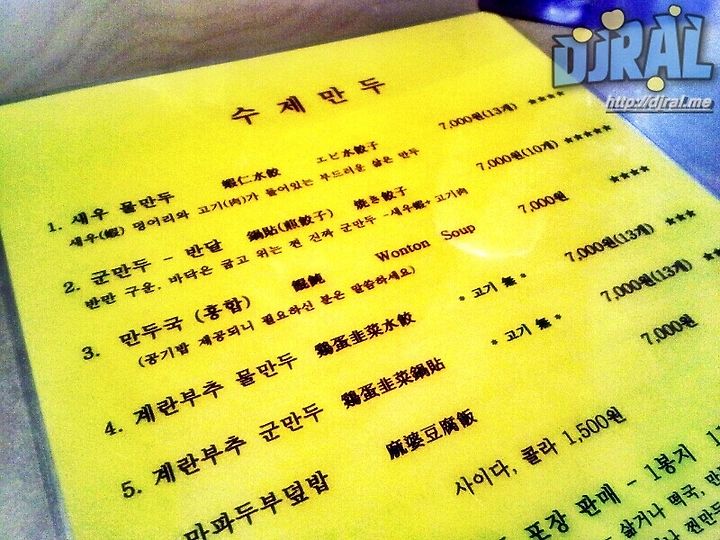 DJRAL
http://djral.me
수제만두
1. 새우 물만두 蝦仁水餃 エビ水餃子 7,000원(13개) ★★★★
새우(蝦) 덩어리와 고기(肉)가 들어있는 부드러운 삶은 만두
2. 군만두 - 반달 鍋貼(煎餃子) 焼き餃子 7,000원(10개) ★★★★★
반만 구운, 바닥은 굽고 위는 찐 진짜 군만두 -새우蝦+고기肉
3. 만두국 (홍합) 餛飩 Wonton Soup 7,000원 ★★★★
(공기밥 제공되니 필요하신 분은 말씀하세요)
4. 계란부추 물만두 鷄蛋韭菜水餃 * 고기 無 * 7,000원(13개) ★★★
5. 계란부추 군만두 鷄蛋韭菜鍋貼 * 고기 無 * 7,000원(13개) ★★★★
마파두부덮밥 麻婆豆腐飯 7,000원
사이다, 콜라 1,500원
포장 판매 - 1봉지
삶거나 떡국,
찐만두